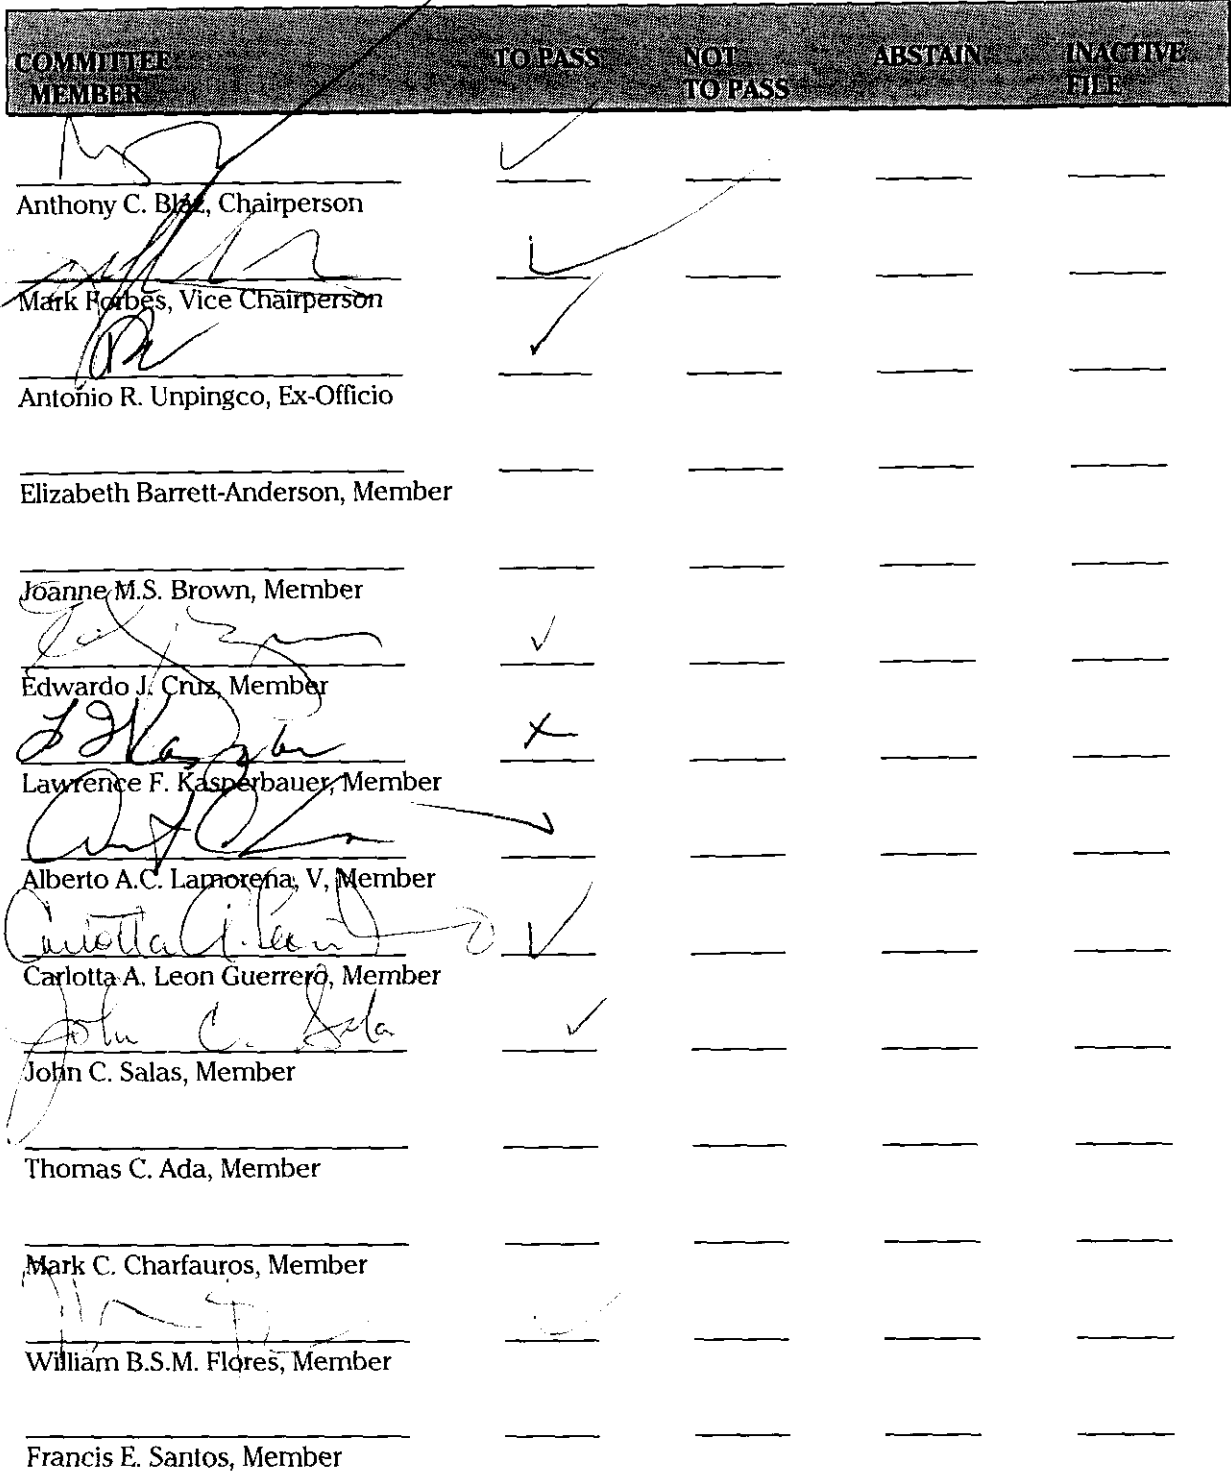 COMMITTEE MEMBER TO PASS NOT TO PASS ABSTAIN INACTIVE FILE
Anthony C. Blaz, Chairperson
Mark Forbes, Vice Chairperson
Antonio R. Unpingco, Ex-Officio
Elizabeth Barrett-Anderson, Member
Joanne M.S. Brown, Member
Edwardo J. Cruz, Member
Lawrence F. Kasperbauer, Member
Alberto A.C. Lamorena, V, Member
Carlotta A. Leon
Carlotta A. Leon Guerrero, Member
John C. Sala
John C. Salas, Member
Thomas C. Ada, Member
Mark C. Charfauros, Member
William B.S.M. Flores, Member
Francis E. Santos, Member